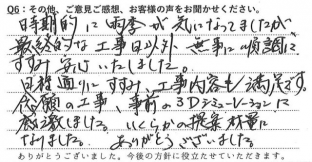 Q6：その他、ご意見ご感想、お客様の声をお聞かせください。
時期的に雨季が気になってましたが
最終的な工事日以外無事に順調に
すすみ安心いたしました。
日程通りにすすみ、工事内容も満足です。
念願の工事、事前の3Dシュミレーションに
感激しました。いくらかの提案材量に
なりました。ありがとうございました。
ありがとうございました。今後の方針に役立たせていただきます。